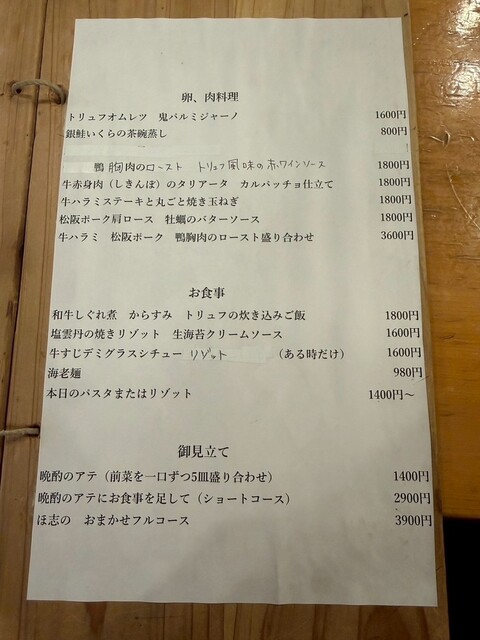 卵、肉料理
トリュフオムレツ　鬼パルミジャーノ　1600円
銀鮭いくらの茶碗蒸し　800円
鴨胸肉のロースト　トリュフ風味の赤ワインソース　1800円
牛赤身肉（しきんぼ）のタリアータ　カルパッチョ仕立て　1800円
牛ハラミステーキと丸ごと焼き玉ねぎ　1800円
松阪ポーク肩ロース　牡蠣のバターソース　1800円
牛ハラミ　松阪ポーク　鴨胸肉のロースト盛り合わせ　3600円
お食事
和牛しぐれ煮　からすみ　トリュフの炊き込みご飯　1800円
塩雲丹の焼きリゾット　生海苔クリームソース　1600円
牛すじデミグラスシチュー　リゾット　（ある時だけ）　1600円
海老麺　980円
本日のパスタまたはリゾット　1400円～
御見立て
晩酌のアテ（前菜を一口ずつ5皿盛り合わせ）　1400円
晩酌のアテにお食事を足して（ショートコース）　2900円
ほ志の　おまかせフルコース　3900円